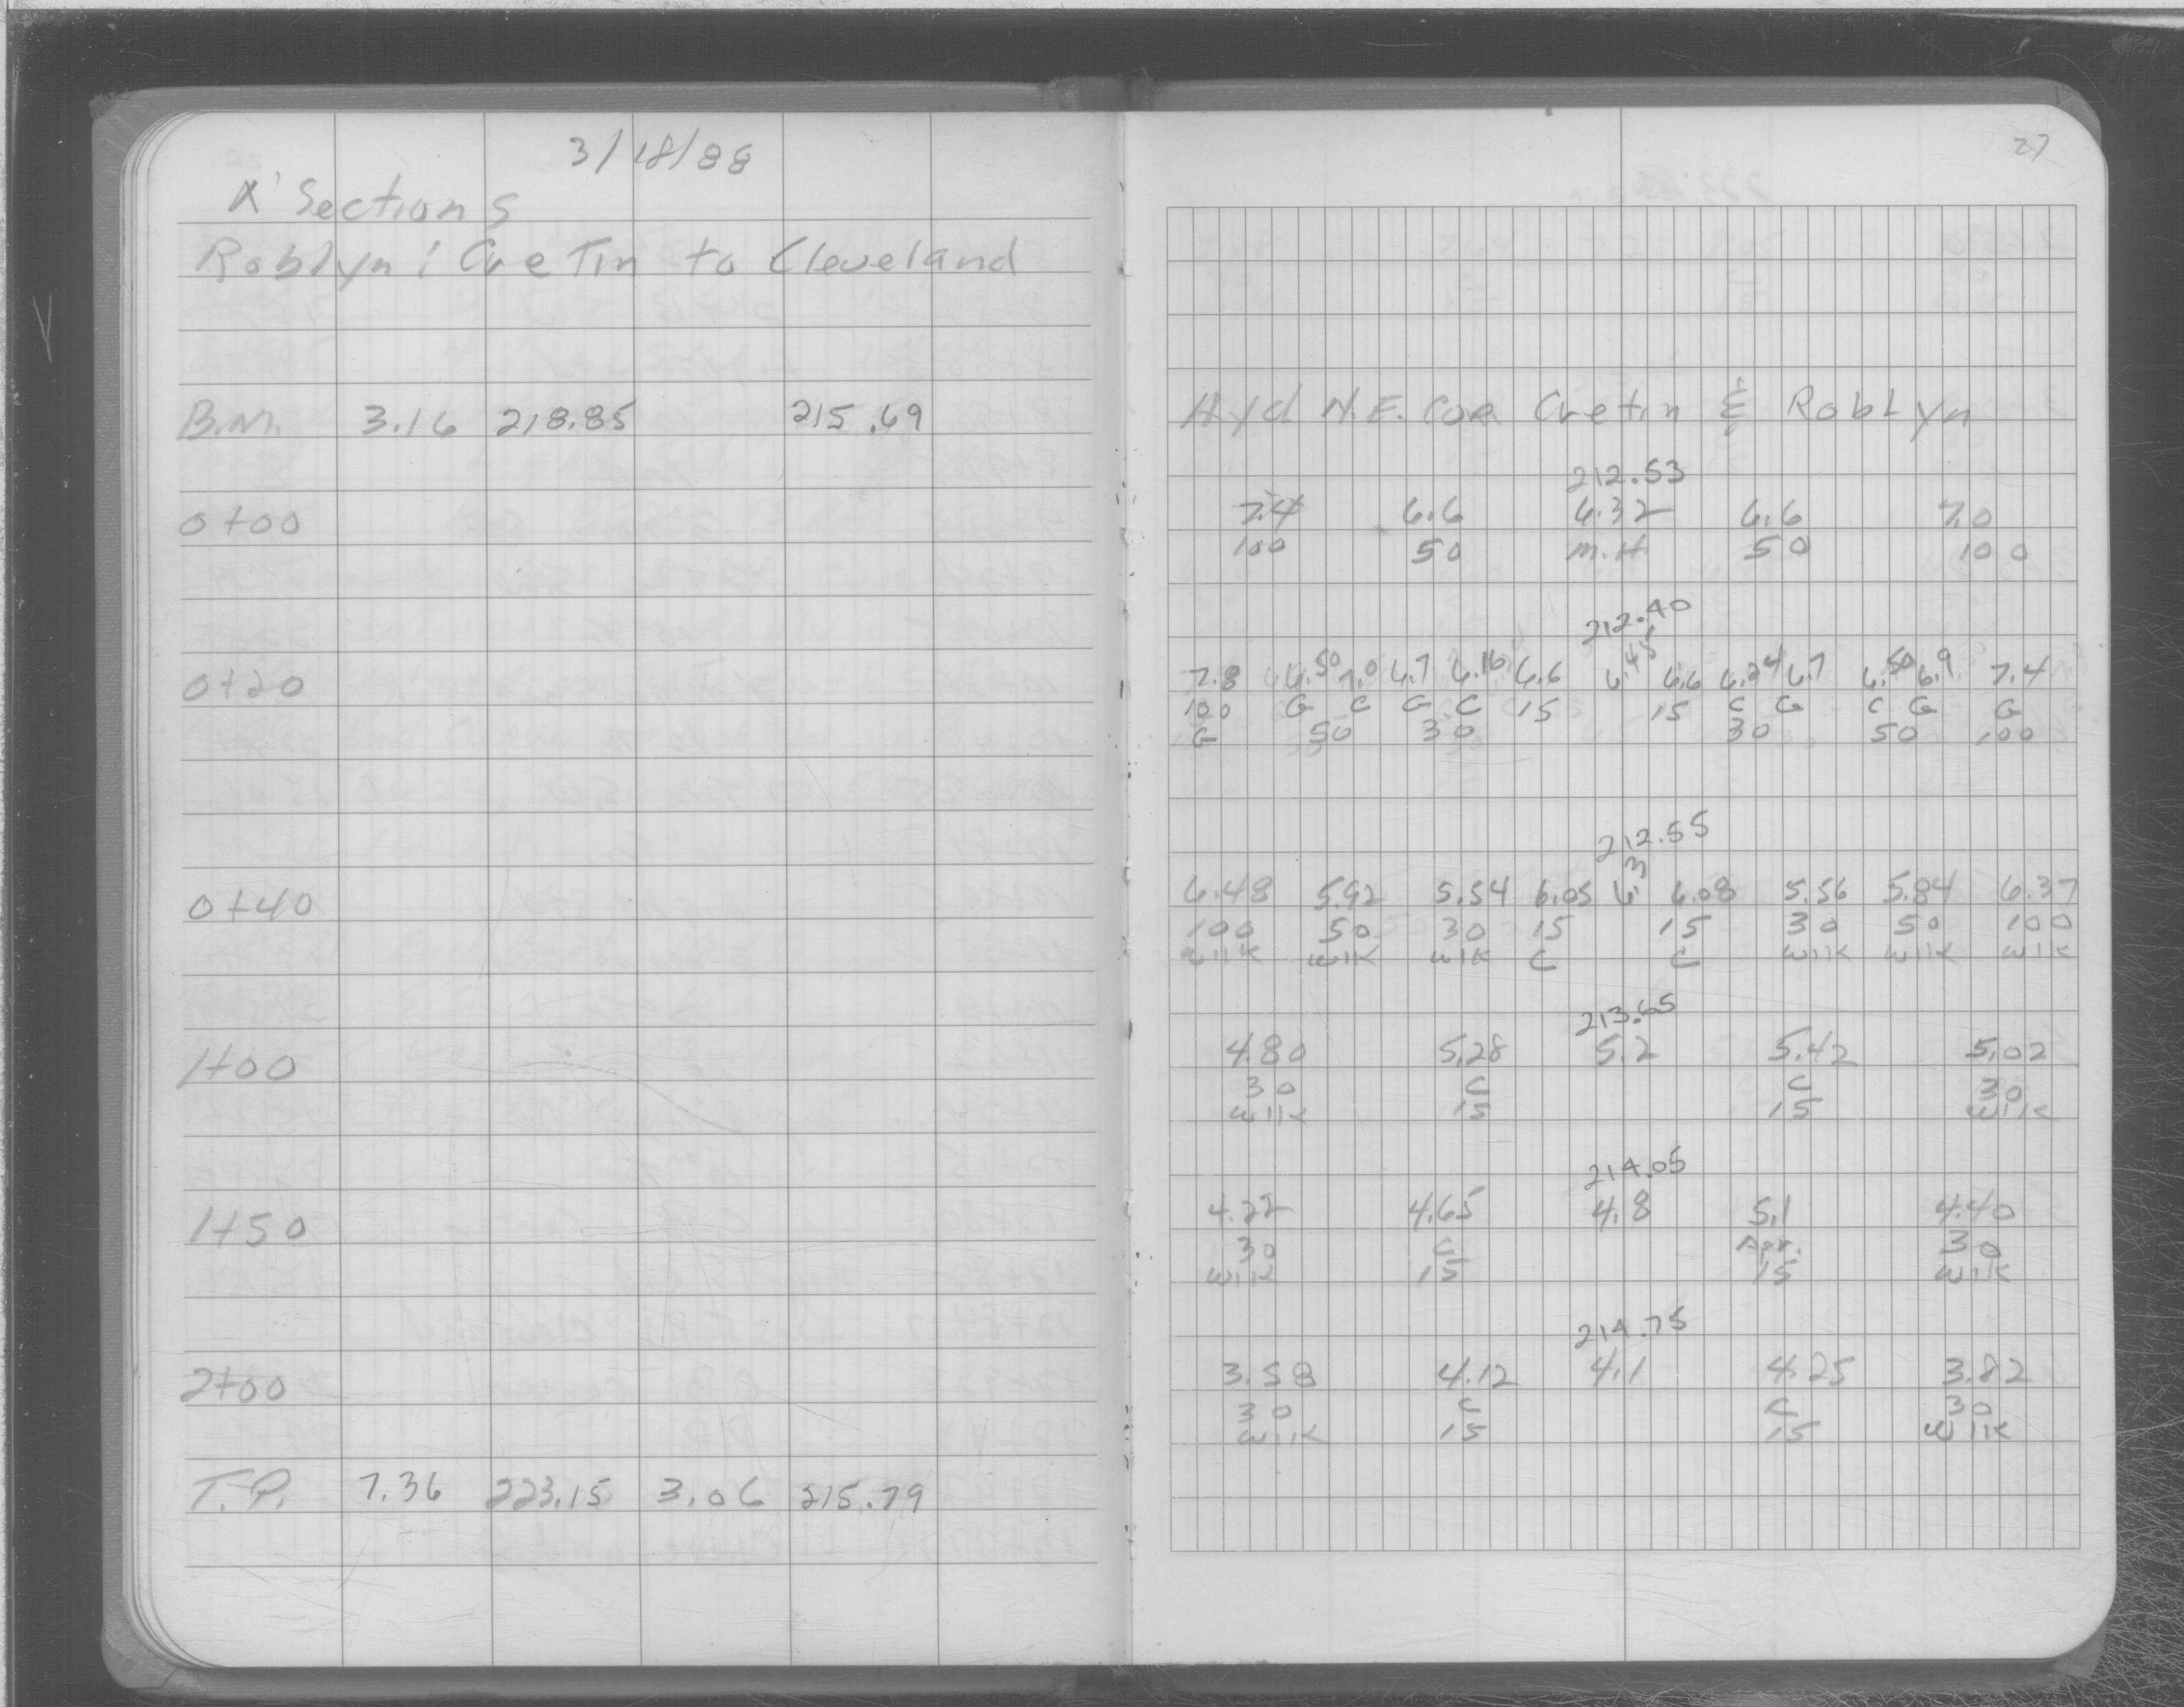 3/18/88
X Sections
Roblyn: Cretin to Cleveland
27
B.M. 3.16 218.85 215.69 Hyd N.E. Cor Cretin & Roblyn
212.53
0+00 7.4 6.6 6.32 6.6 7.0
100 50 M.H. 50 100
212.40
0+20 7.8 6.50 7.0 6.7 6.16 6.6 6.45 6.6 6.24 6.7 6.50 6.9 7.4
100 G C G C 15 15 C G C G G
G 50 30 30 50 100
212.55
0+40 6.48 5.92 5.54 6.05 6.3 6.08 5.56 5.84 6.37
100 50 30 15 15 30 50 100
wlk wlk wlk C C wlk wlk wlk
213.65
1+00 4.80 5.28 5.2 5.42 5.02
30 C C 30
wlk 15 15 wlk
214.05
1+50 4.22 4.65 4.8 5.1 4.40
30 C Apr. 30
wlk 15 15 wlk
214.75
2+00 3.58 4.12 4.1 4.25 3.82
30 C C 30
wlk 15 15 wlk
T.P. 7.36 223.15 3.06 215.79